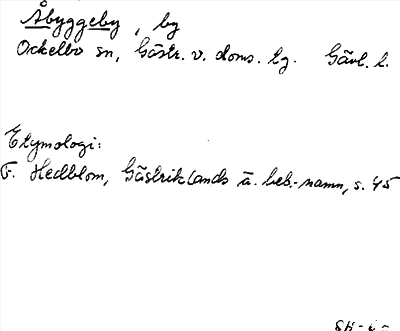 Åbyggeby, by
Ockelbo sn, Gästr. v. doms. tg. Gävl. l.
Etymologi:
F. Hedblom, Gästriklands ä. beb.-namn, s. 45